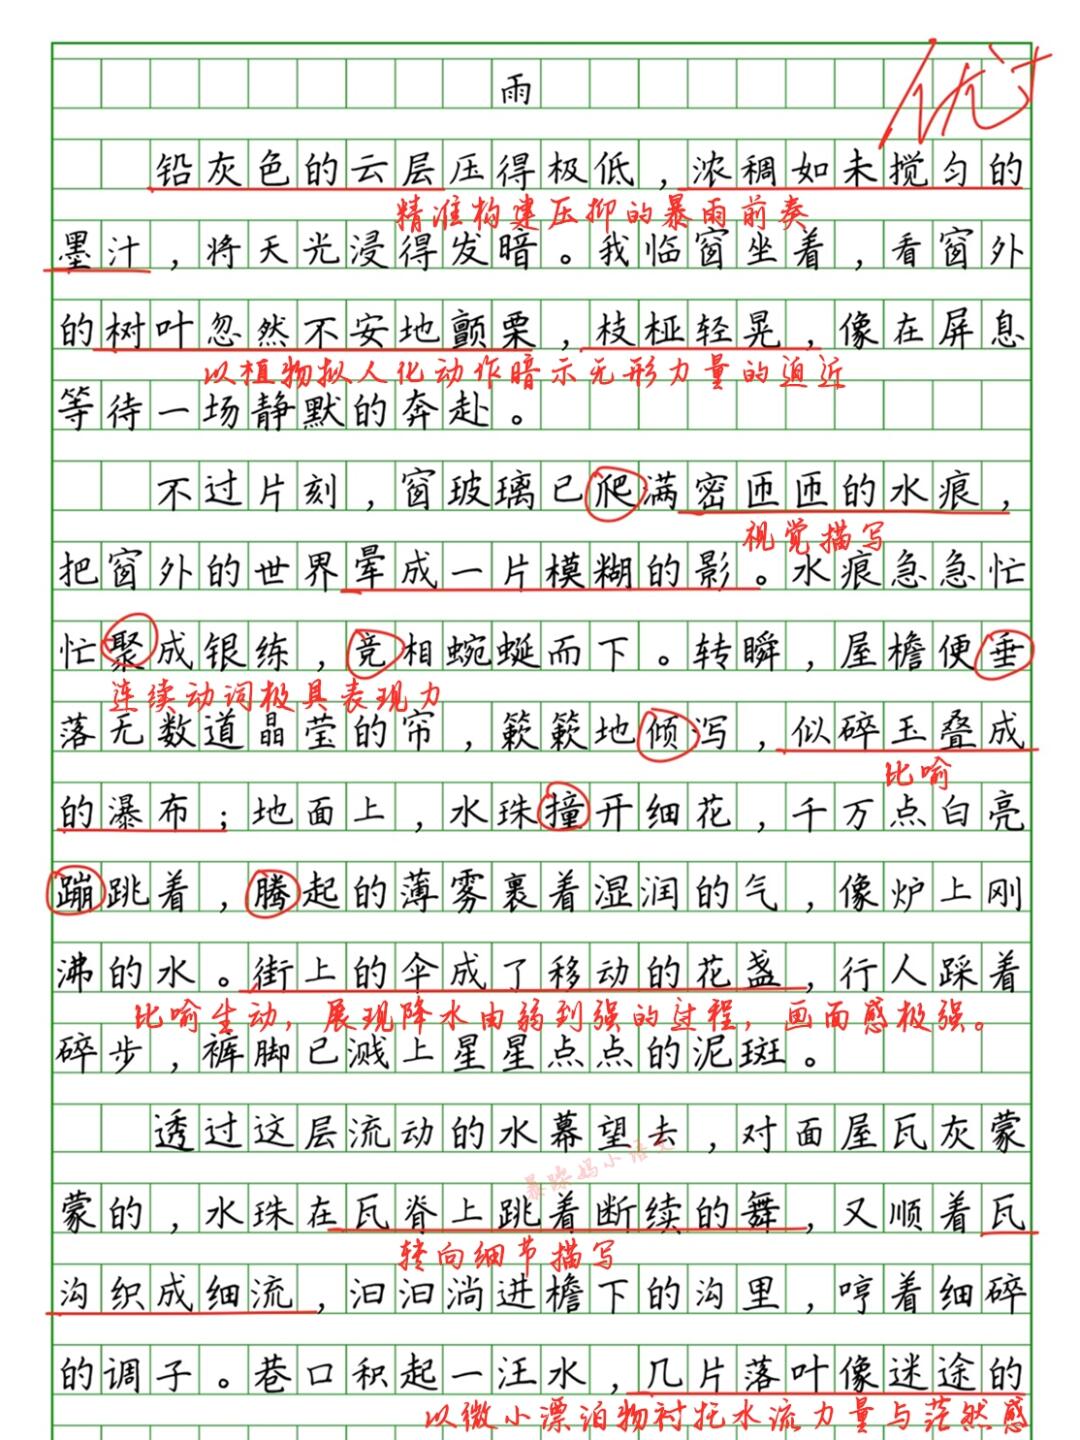 雨
优+
铅灰色的云层压得极低，浓稠如未搅匀的
精准构建压抑的暴雨前奏
墨汁，将天光浸得发暗。我临窗坐着，看窗外
的树叶忽然不安地颤栗，枝桠轻晃，像在屏息
以植物拟人化动作暗示无形力量的迫近
等待一场静默的奔赴。
不过片刻，窗玻璃已爬满密匝匝的水痕，
视觉描写
把窗外的世界晕成一片模糊的影。水痕急急忙
忙聚成银练，竞相蜿蜒而下。转瞬，屋檐便垂
连续动词极具表现力
落无数道晶莹的帘，簌簌地倾泻，似碎玉叠成
比喻
的瀑布；地面上，水珠撞开细花，千万点白亮
蹦跳着，腾起的薄雾裹着湿润的气，像炉上刚
沸的水。街上的伞成了移动的花盏，行人踩着
比喻生动，展现降水由弱到强的过程，画面感极强。
碎步，裤脚已溅上星星点点的泥斑。
透过这层流动的水幕望去，对面屋瓦灰蒙
蒙的，水珠在瓦脊上跳着断续的舞，又顺着瓦
转向细节描写
沟织成细流，汩汩淌进檐下的沟里，哼着细碎
的调子。巷口积起一汪水，几片落叶像迷途的
以微小漂泊物衬托水流力量与茫然感